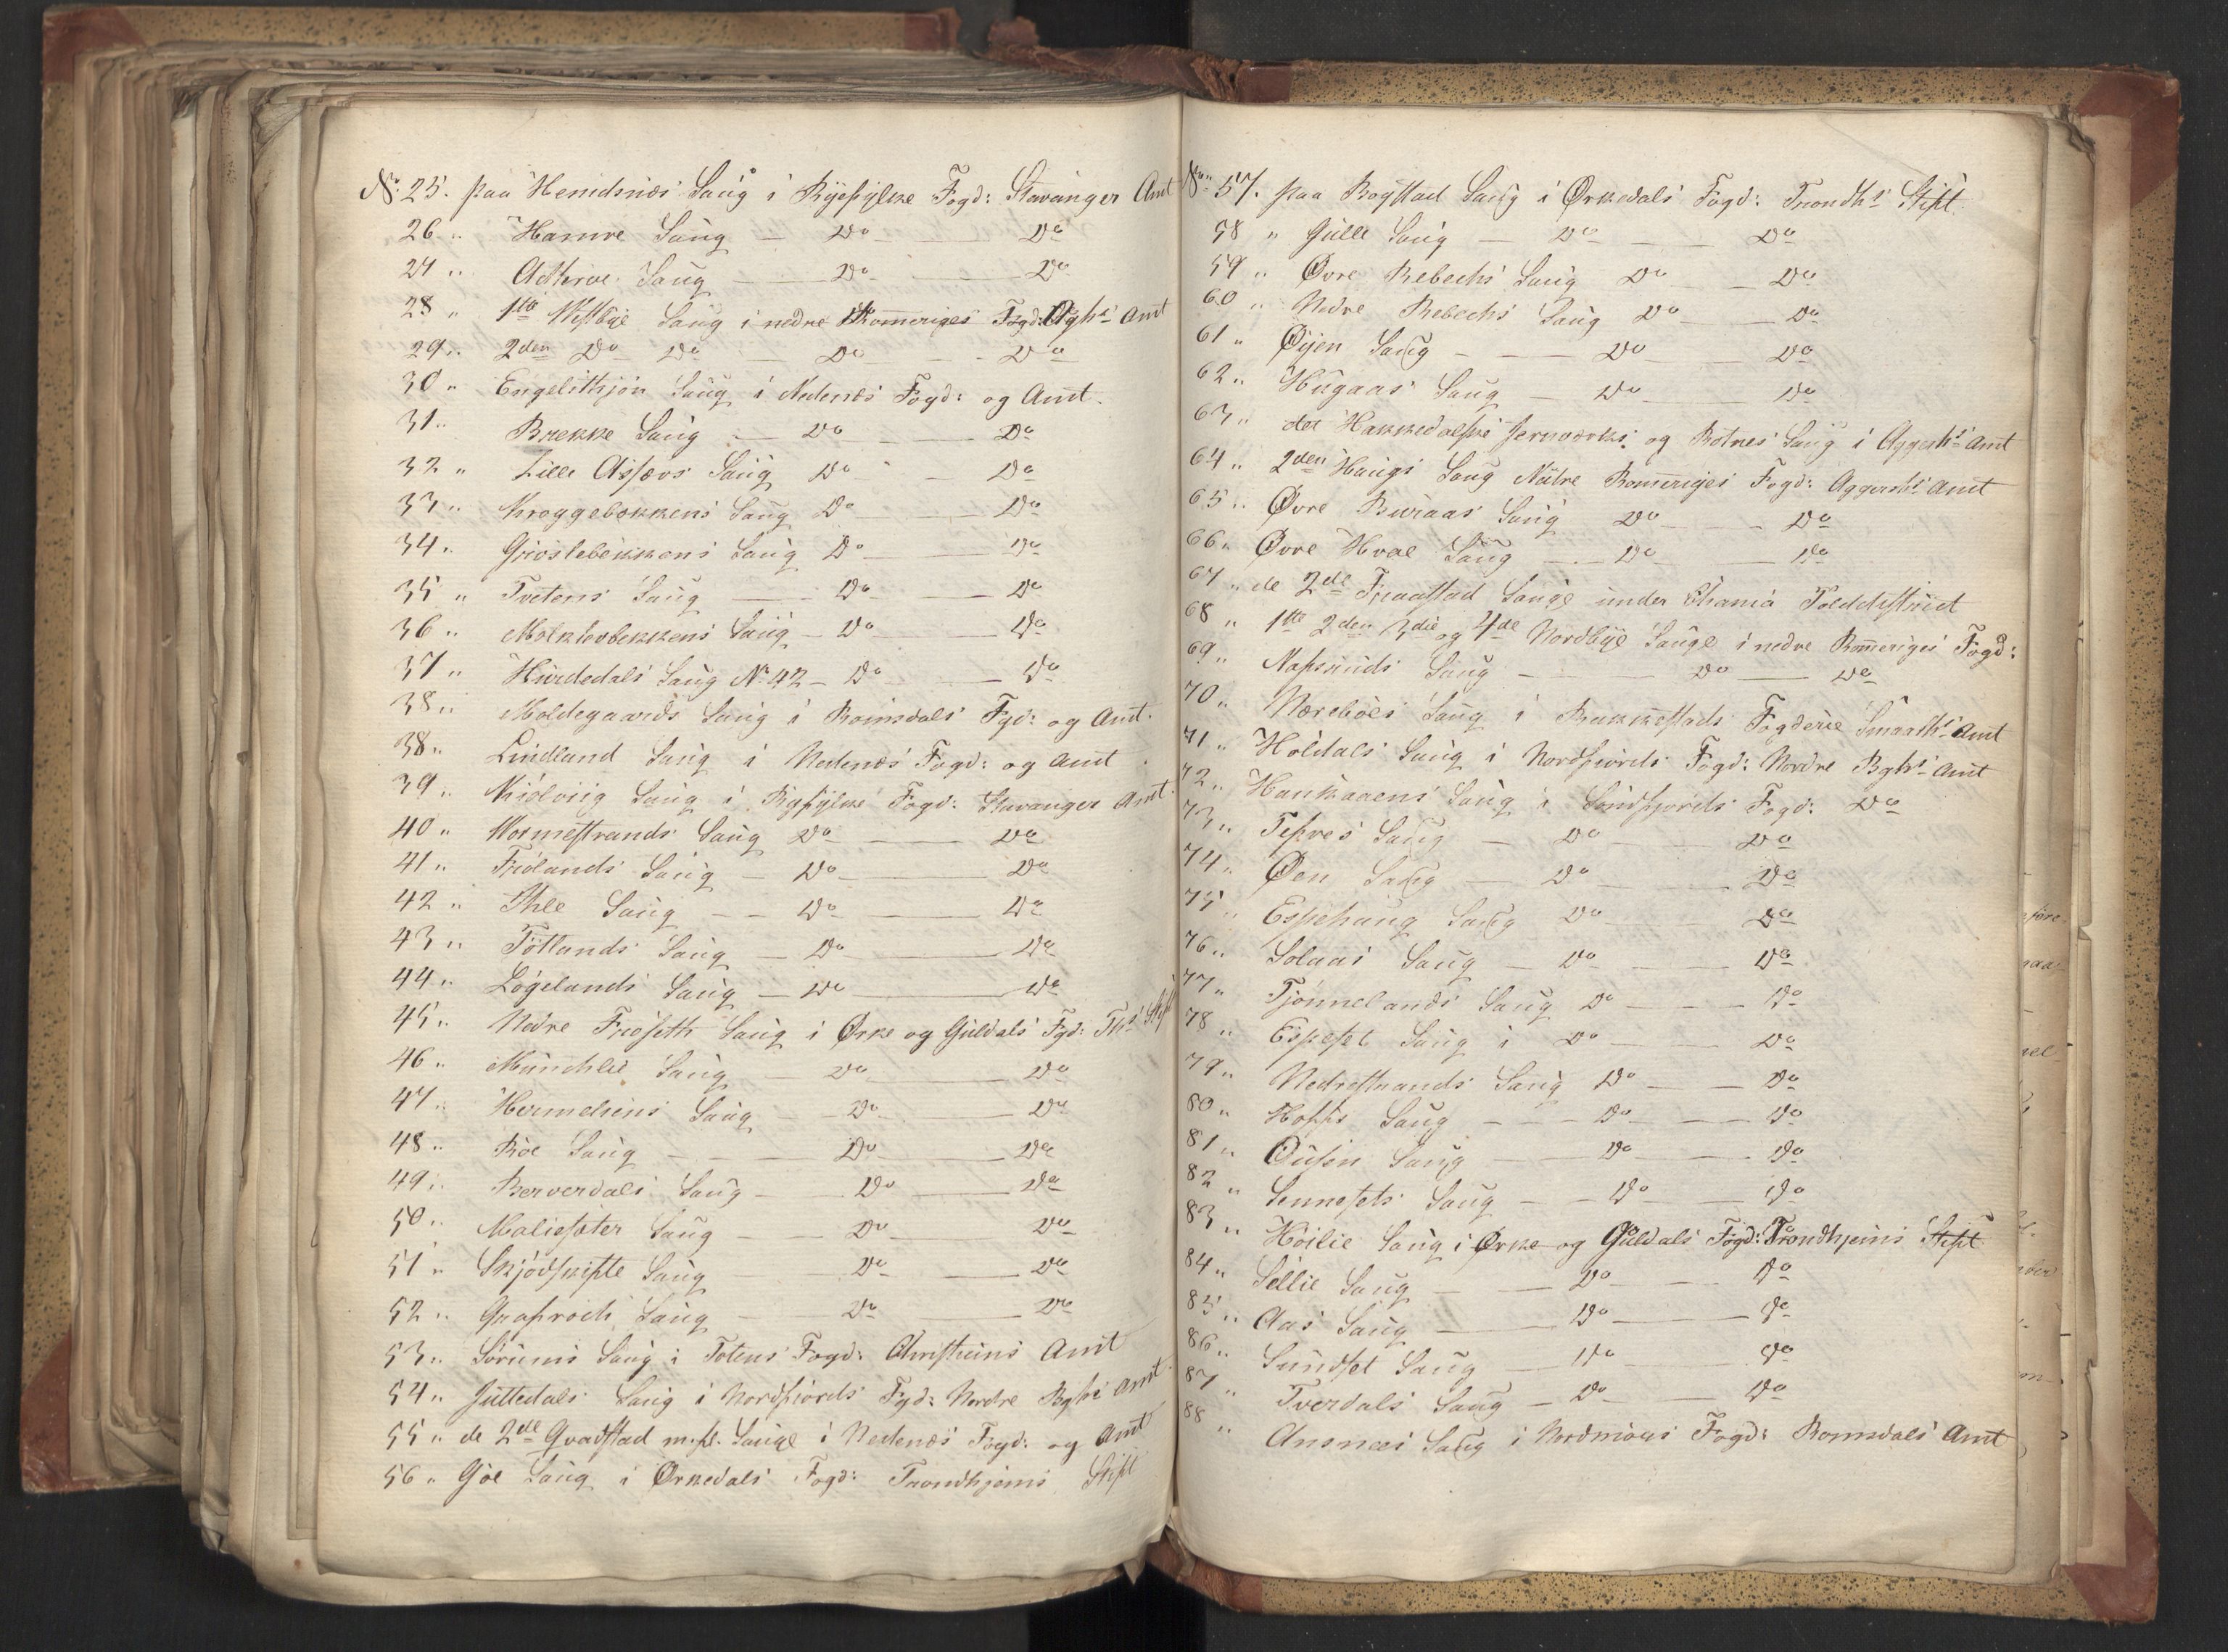 No. 25. paa Hemdsnæs Saug i Ryefylke Fogd: Stavanger Amt
26 " Hamre Saug — Do — Do
27 " Adterøe Saug — Do — Do
28 " 1ste Westbye Saug i nedre Romeriges Fogd: Aghs Amt
29 " 2den Do Do — Do — Do
30 " Engelsthjøn Saug i Nedenæs Fogd: og Amt.
31 " Brekke Saug — Do — Do
32 " Lille Assævs Saug Do — Do
33 " Kroggebækkens Saug Do — Do
34 " Grøslebekkens Saug Do — Do
35 " Tvetens Saug — Do — Do
36 " Molklevbekkens Saug — Do — Do
37 " Hurdedals Saug No. 42 — Do — Do
38 " Moldegaards Saug i Romsdals Fgd: og Amt.
38 " Lindland Saug i Nedenæs Fogd: og Amt.
39 " Kiølviig Saug i Ryfylke Fogd: Stavanger Amt.
40 " Wormestrands Saug Do — Do
41 " Frølands Saug — Do — Do
42 " Ihle Saug — Do — Do
43 " Tøtlands Saug — Do — Do
44 " Løgelands Saug — Do — Do
45 " Nedre Frøseth Saug i Ørke og Guldals Fgd: Ths Stift
46 " Munchlie Saug — Do — Do
47 " Hermeliens Saug — Do — Do
48 " Röe Saug — Do — Do
49 " Berverdals Saug — Do — Do
50 " Moliesæter Saug — Do — Do
51 " Skjødskifte Saug — Do — Do
52 " Saug — Do — Do
53 " Sørums Saug i Totens Fogd: Christians Amt
54 " Juttedals Saug i Nordfiords Fgd: Nordre Byhs Amt.
55 " de 2de Qvadstad m.fl. Sauge i Nedenæs Fogd: og Amt
56 " Göe Saug i Ørkedals Fogd: Trondhjems Stift
No. 57. paa Rogstad Saug i Ørkedals Fogd: Trondhs Stift.
58 " Gulle Saug — Do — Do
59 " Øvre Rebechs Saug Do — Do
60 " Nedre Rebechs Saug Do — Do
61 " Øyen Saug — Do — Do
62 " Hugaas Saug — Do — Do
63 " det Hakkedalske Jernværks og Rotnes Saug i Aggershs Amt
64 " 2den Haugs Saug Nedre Romeriges Fogd: Aggershs Amt
65 " Øvre Buraas Saug Do — Do
66 " Øvre Hvae Saug — Do — Do
67 " de 2de Fraastad Sauge under Chania Tolddistrict
68 " 1ste 2den 3die og 4de Nordbye Sauge i nedre Romeriges Fogd:
69 " Næssunds Saug — Do — Do
70 " Næreböes Saug i Rakkestads Fogderie Smaalhs Amt
71 " Holdals Saug i Nordfiords Fogd: Nordre Byhs Amt
72 " Haukaaens Saug i Søndfjords Fogd: Do
73 " Saug — Do — Do
74 " Øen Saug — Do — Do
75 " Espehaug Saug Do — Do
76 " Solaas Saug — Do — Do
77 " Tjønnelands Saug Do — Do
78 " Espeset Saug i Do — Do
79 " Nedrestrands Saug Do — Do
80 " Hopps Saug — Do — Do
81 " Ousen Saug — Do — Do
82 " Sennesets Saug — Do — Do
83 " Høilie Saug i Ørke og Guldals Fogd: Trondhjems Stift
84 " Sellie Saug — Do — Do
85 " Aas Saug — Do — Do
86 " Sundset Saug — Do — Do
87 " Tverdals Saug — Do — Do
88 " Ansnæs Saug i Nordmøers Fogd: Romsdals Amt